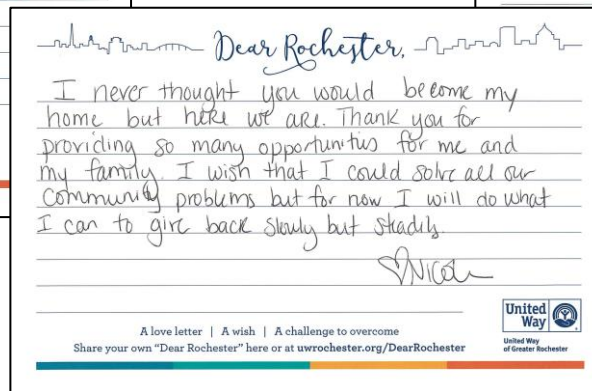 Dear Rochester,
I never thought you would become my
home but here we are. Thank you for
providing so many opportunities for me and
my family. I wish that I could solve all our
community problems but for now I will do what
I can to give back slowly but steadily.
♡Nicole
A love letter | A wish | A challenge to overcome
Share your own "Dear Rochester" here or at uwrochester.org/DearRochester
United
Way
United Way
of Greater Rochester